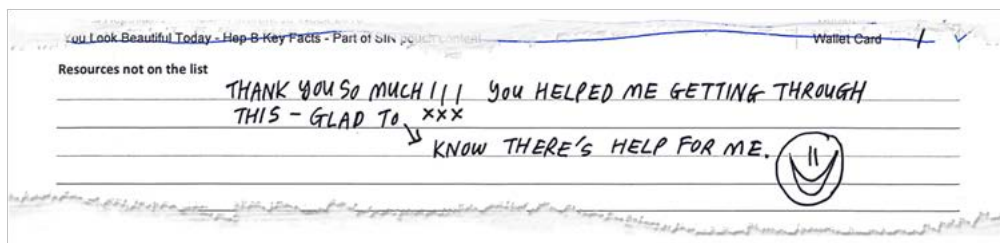 You Look Beautiful Today - Hep B Key Facts - Part of SIN pouch content Wallet Card 1
Resources not on the list
THANK YOU SO MUCH!!! YOU HELPED ME GETTING THROUGH
THIS - GLAD TO xxx
KNOW THERE'S HELP FOR ME.